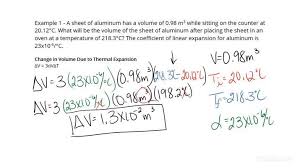 Example 1 - A sheet of aluminum has a volume of 0.98 m³ while sitting on the counter at
20.12°C. What will be the volume of the sheet of aluminum after placing the sheet in an
oven at a temperature of 218.3°C? The coefficient of linear expansion for aluminum is
23x10⁻⁶/°C.
Change in Volume Due to Thermal Expansion
ΔV = 3αV₀ΔT
V=0.98m³
ΔV=3(23x10⁻⁶/°C)(0.98m³)(218.3℃-20.12℃)
T₀=20.12℃
ΔV=3(23x10⁻⁶/°C)(0.98m³)(198.2℃)
T=218.3℃
ΔV=1.3x10⁻²m³
α=23x10⁻⁶/°C